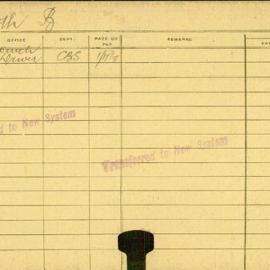 th B
OFFICE DEPT. RATE OF PAY REMARKS
Driver CBS
d to New System
Transferred to New System